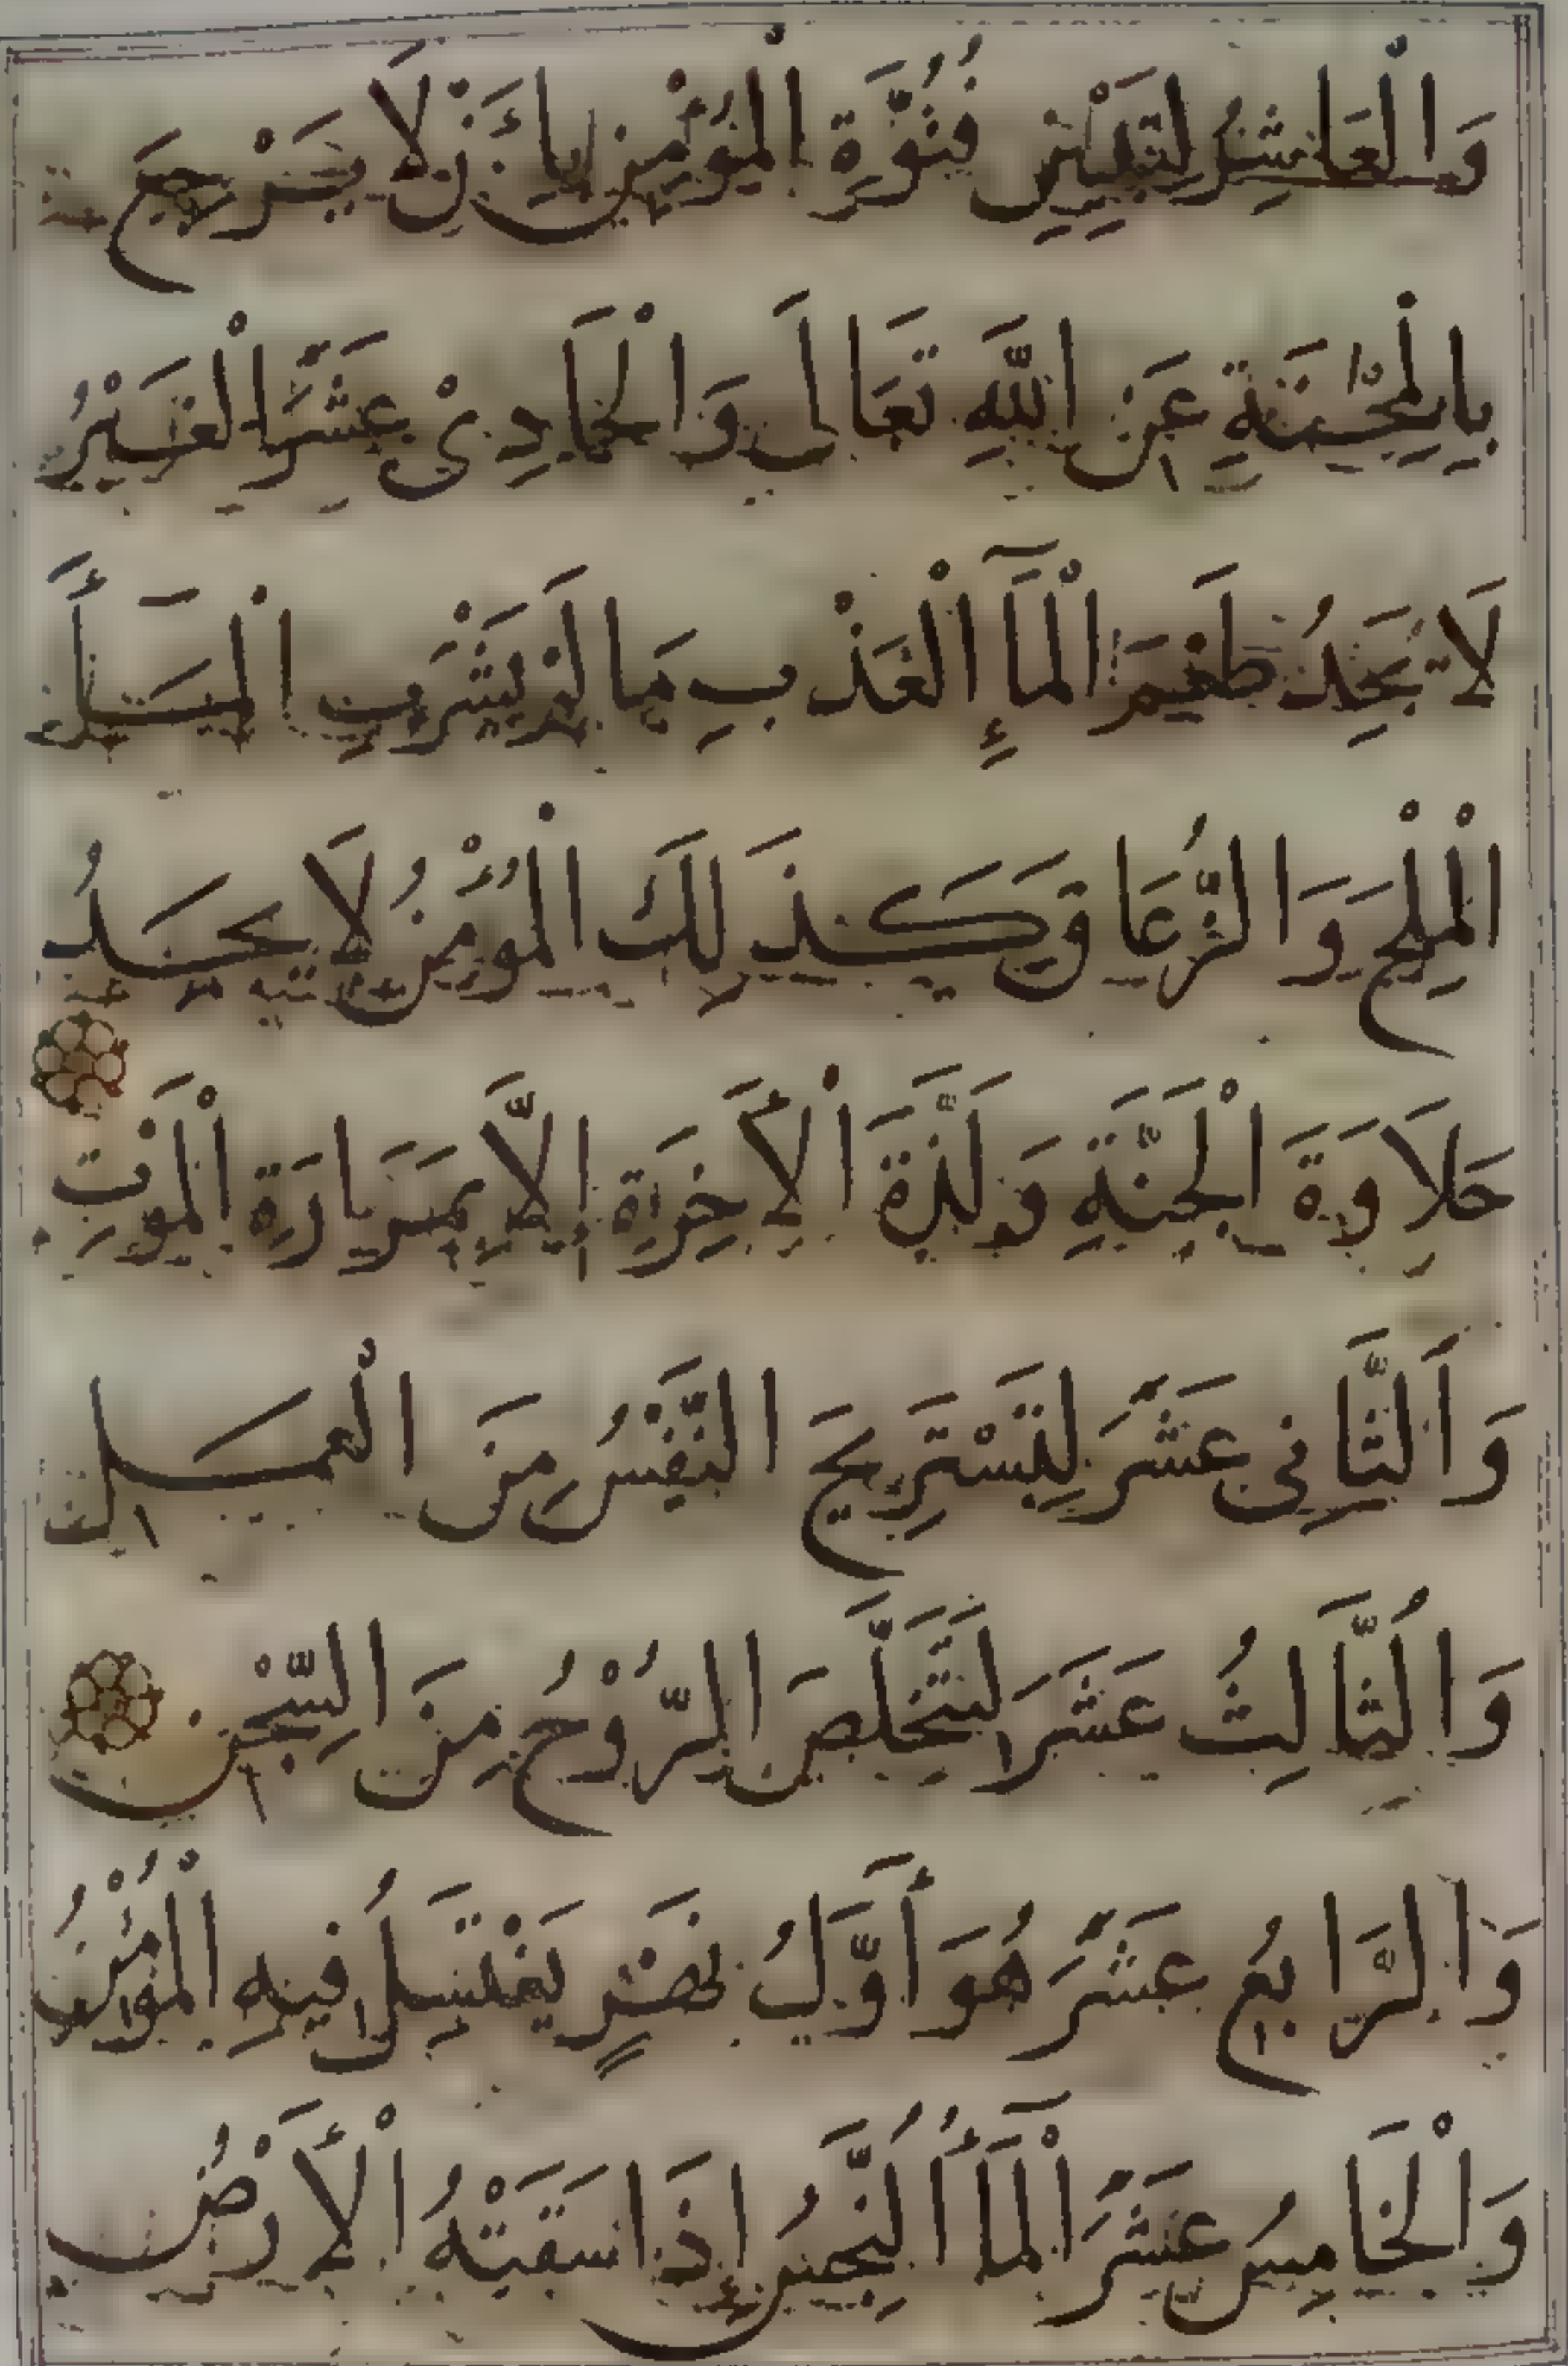 وَالْعَاشِرُ لِتَبْيِيْنِ فُتُوَّةِ الْمُؤْمِنِ بِاَنْ لَا يَرْجِعَ
بِالْمِحْنَةِ عَنِ اللّٰهِ تَعَالَى وَالْحَادِىْ عَشَرَ الْغَيْرُ
لَا تَجِدُ طَعْمَ الْمَآءِ الْعَذْبِ مَا لَمْ يَشْرَبِ الْمَآءَ
الْمِلْحَ وَالزُّعَاقَ وَكَذَلِكَ الْمُؤْمِنُ لَا يَجِدُ
حَلَاوَةَ الْجَنَّةِ وَلَذَّةَ الْأَخِرَةِ إِلَّا بِمَرَارَةِ الْمَوْتِ
وَالثَّانِى عَشَرَ لِتَسْتَرِيْحَ النَّفْسُ مِنَ الْعَمَلِ
وَالثَّالِثُ عَشَرَ لِتَتَخَلَّصَ الرُّوْحُ مِنَ السِّجْنِ
وَالرَّابِعُ عَشَرَ هُوَ أَوَّلُ نَهْرٍ يَغْتَسِلُ فِيْهِ الْمُؤْمِنُ
وَالْخَامِسُ عَشَرَ الْمَآءُ النَّجِسُ إِذَا سَقَتْهُ الْأَرْضُ